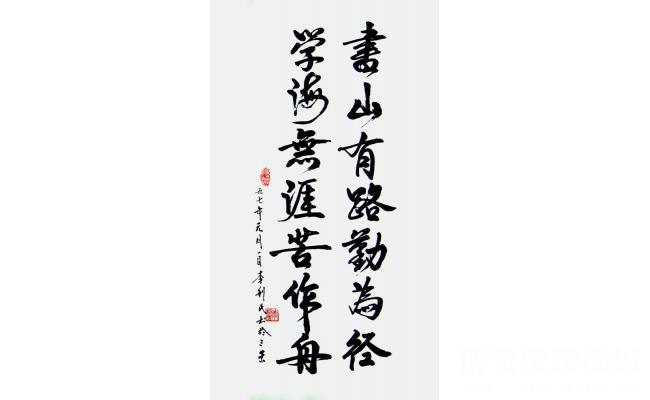 書山有路勤為径
学海無涯苦作舟
九七年元月一日李利民书於三